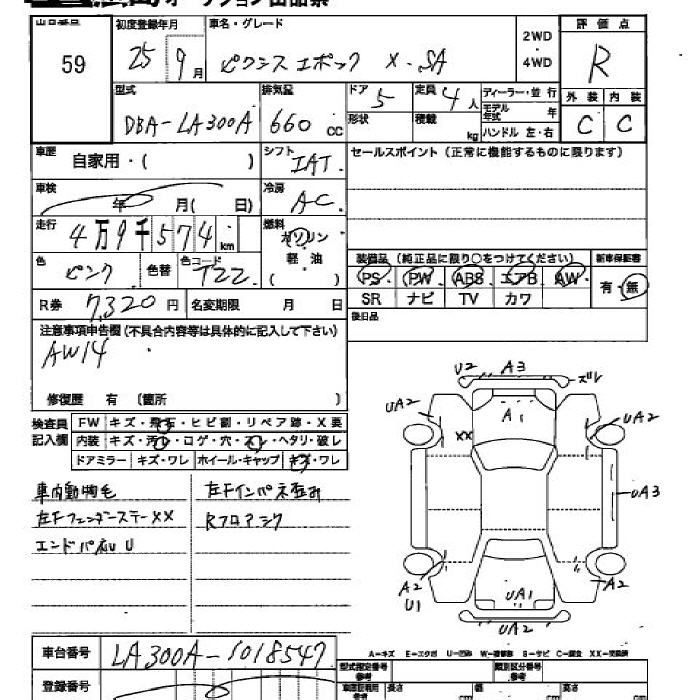 オークション出品票
出品番号 59
初度登録年月 25 9月
車名・グレード ピクシス エポック X・SA
2WD ・ 4WD
評価点 R
外装 C 内装 C
型式 DBA-LA300A
排気量 660 CC
ドア 5 形状
定員 4人 積載 kg
ディーラー・並行
モデル年式 年
ハンドル 左・右
車歴 自家用・( )
シフト IAT.
セールスポイント(正常に機能するものに限ります)
車検 年 月( 日)
冷房 AC.
走行 4万9千574 km
燃料 ガソリン 軽油
色 ピンク 色替 色コード T22.
装備品(純正品に限り○をつけてください)
PS・PW・ABS・エアB・AW・
SR ナビ TV カワ
新車保証書 有・無
R券 7,320円 名変期限 月 日
後日品
注意事項申告欄(不具合内容等は具体的に記入して下さい)
AW14
修復歴 有 〔箇所 〕
検査員記入欄
FW キズ・飛石・ヒビ割・リペア跡・X要
内装 キズ・汚レ・コゲ・穴・スレ・ヘタリ・破レ
ドアミラー キズ・ワレ ホイール・キャップ キズ・ワレ
車内動物毛
左Fフェンダーステー××
エンドパネル U
左Fインパネ歪み
Rフロアシワ
U2 A3 ズレ
UA2 A1 UA2
XX
UA3
A2 U1 UA1 A2
UA2
A-キズ E-エクボ U-凹み W-補修跡 S-サビ C-腐食 XX-交換済
車台番号 LA300A-5018547
登録番号
型式指定番号 参考 類別区分番号 参考
車庫証明用 参考 長さ cm 幅 cm 高さ cm